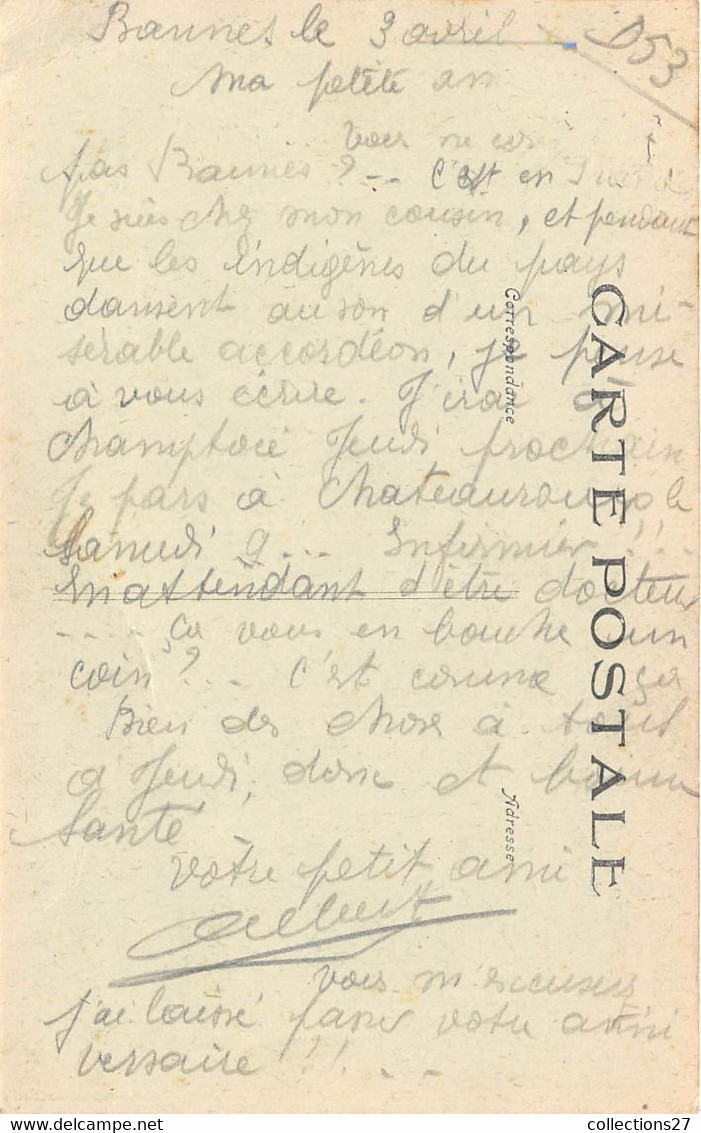 Bannes le 3 avril
D53
Ma petite am
Vous ne con
pas Bannes ? -- C'est en
Je suis chez mon cousin, et pendant
que les indigènes du pays
dansent au son d'un mi-
sérable accordéon, je pense
à vous écrire. J'irai à
Champtocé Jeudi prochain
Je pars à Chateauroux le
Samedi 9 ... Infirmier !!! ..
En attendant d'être docteur
..... Ça vous en bouche un
coin ? ... C'est comme ça
Bien des chose à tous
à Jeudi, donc et bonne
Santé
Votre petit ami
Albert
Vous m'excuser
j'ai laissé passer votre anni
versaire !!! . . .
CARTE POSTALE
Correspondance
Adresse
collections27